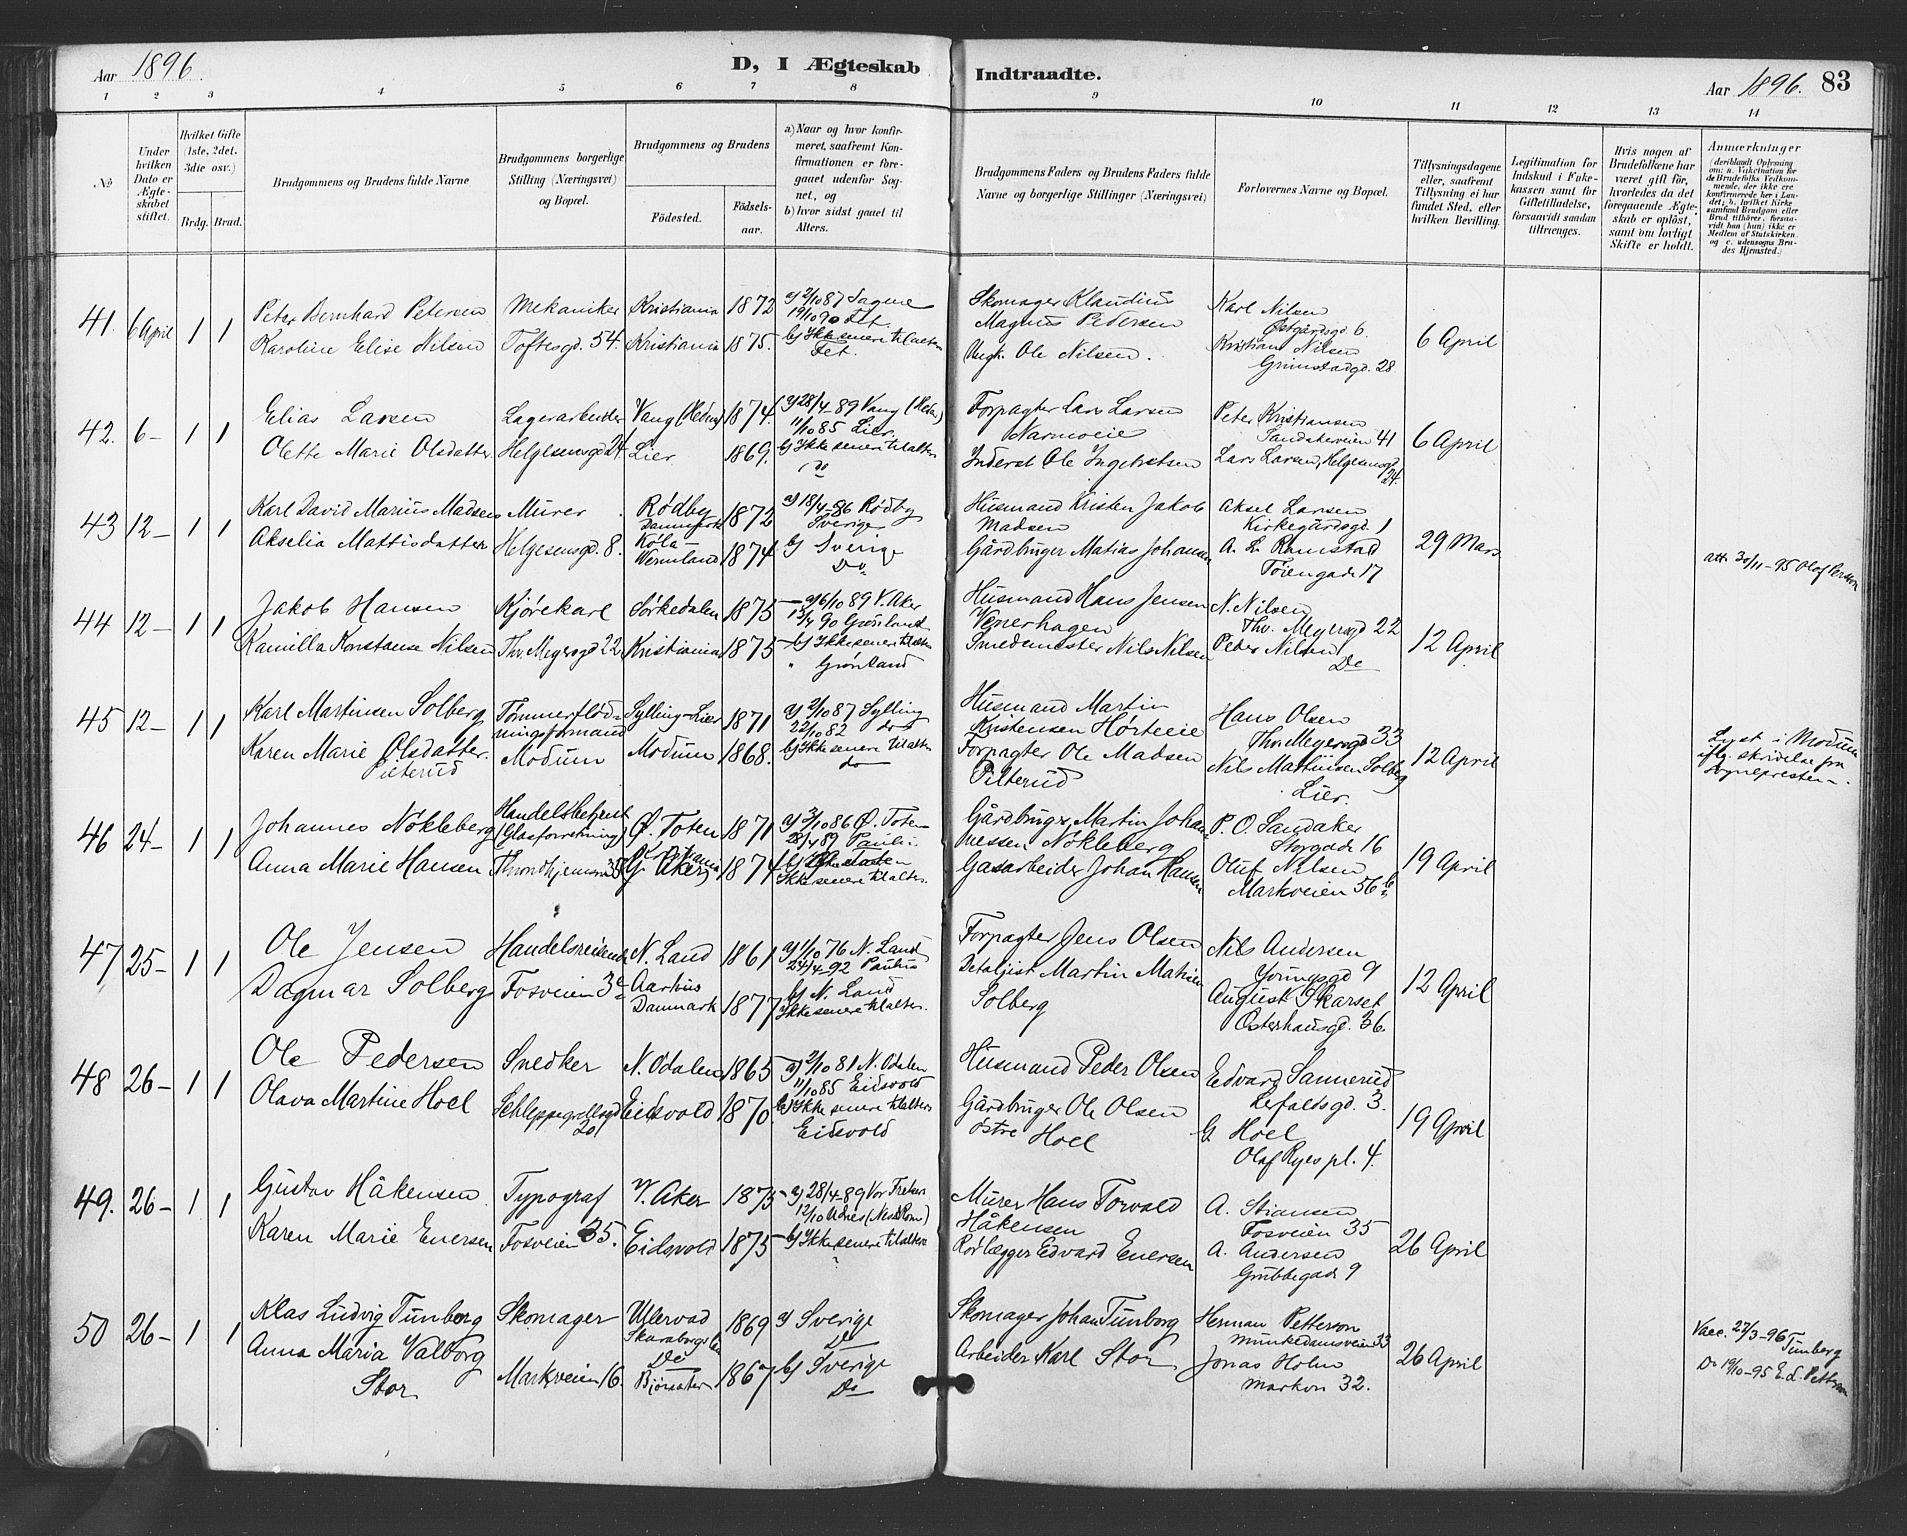 Aar 1896.
D, I Ægteskab Indtraadte.
Aar 1896. 83
1 2 3 4 5 6 7 8 9 10 11 12 13 14
No
Under hvilken Dato er Ægteskabet stiftet.
Hvilket Gifte (1ste, 2det, 3die osv.)
Brdg. Brud.
Brudgommens og Brudens fulde Navne
Brudgommens borgerlige Stilling (Næringsvei) og Bopæl.
Brudgommens og Brudens
Fødested.
Fødselsaar.
a) Naar og hvor konfirmeret, saafremt Konfirmationen er foregaaet udenfor Sognet, og
b) hvor sidst gaaet til Alters.
Brudgommens Faders og Brudens Faders fulde Navne og borgerlige Stillinger (Næringsvei)
Forlovernes Navne og Bopæl.
Tillysningsdagene eller, saafremt Tillysning ei har fundet Sted, efter hvilken Bevilling.
Legitimation for Indskud i Enkekassen samt for Giftetilladelse, forsaavidt saadan tiltrænges.
Hvis nogen af Brudefolkene har været gift før, hvorledes da det foregaaende Ægteskab er opløst, samt om lovligt Skifte er holdt.
Anmærkninger
(deriblandt Oplysning om: a. Vaktination for de Brudefolks Vedkommende, der ikke ere konfirmerede her i Landet; b. hvilket Kirkesamfund Brudgom eller Brud tilhører, forsaavidt han (hun) ikke er Medlem af Statskirken, og c. udensogns Brudes Hjemsted.)
41. 6 April 1 1
Peter Bernhard Petersen
Karoline Elise Nilsen
Mekaniker
Toftesgd. 54.
Kristiania 1872
Kristiania 1875.
a) 2/10 87 Sagene
19/10 90 Fet.
b) Ikke senere til alters
Fet.
Skomager Klaudius
Magnus Pedersen
Ole Nilsen.
Karl Nilsen
Østgårdsgd 6
Kristian Nilsen
Grimstadgd. 28
6 April
42. 6- 1 1
Elias Larsen
Olette Marie Olsdatter
Lagerarbeider
Helgesensgd 24.
Vang (Hedm) 1874.
Lier 1869.
a) 28/4-89 Vang (Hedm)
11/10 85 Lier.
b) Ikke senere til alters
do
Forpagter Lars Larsen
Narmoeie
Inderst Ole Ingebretsen
Peter Kristiansen
Sandakerveien 41
Lars Larsen, Helgesensgd
24.
6 April
43 12- 1 1
Karl David Marius Madsen
Akselia Mattisdatter
Murer
Helgesensgd. 8.
Rødby
Danmark 1872
Køla-
Wermland 1874
a) 18/4-86 Rødby
Sverige
b) Sverige
Do
Husmand Kristen Jakob
Madsen
Gårdbruger Matias Johansen
Aksel Larsen
Kirkegårdsgd. 1
A. L. Ramstad
Tøiengade 17
29 Mars
att. 30/11-95 Olof Persson
44 12- 1 1
Jakob Hansen
Kamilla Konstanse Nilsen
Kjørekarl
Thv. Meyersgd 22
Sørkedalen 1875
Kristiania 1875
a) 6/10 89 V. Aker
13/4 90 Grønland
b) Ikke senere til alters
" Grønland
Husmand Hans Jensen
Venerhagen
Smedemester Nils Nilsen
N. Nilsen
Thv. Meyersgd 22
Peder Nilsen
Do
12 April
45 12- 1 1
Karl Martinsen Solberg
Karen Marie Olsdatter.
Pilterud
Tømmerflød=
ningsformand
Modum
Sylling-Lier 1871
Modum 1868.
a) 2/10 87 Sylling
22/10 82 do
b) Ikke senere til alters
do
Husmand Martin
Kristensen Hørteeie
Forpagter Ole Madsen
Pilterud
Hans Olsen
Thv. Meyersgd 33
Nils Martinsen Solberg
Lier.
12 April
Lyst i Modum
iflg. skrivelse fra
Sognepresten.
46 24- 1 1
Johannes Nøkleberg
Anna Marie Hansen
Handelsbetjent
(Glasforretning)
Throndhjemsv 35
Ø. Toten 1871
Kristiania
(V. Aker) 1874
a) 3/10 86 Ø. Toten
28/4 89 Pauli.
b) Ø. Toten
Ikke senere til alters.
Gårdbruger Martin Johan=
nessen Nøkleberg
Gasarbeider Johan Hansen
P. O. Sandaker
Storgade 16
Oluf Nilsen
Markveien 56 b.
19 April
47 25- 1 1
Ole Jensen
Dagmar Solberg
Handelsreisende
Fosveien 3c
N. Land 1861
Aarhus
Danmark 1877
a) 1/10 76 N. Land
24/4-92 Paulus
b) N. Land
Ikke senere til alters.
Forpagter Jens Olsen
Detaljist Martin Matias
Solberg
Nils Andersen
Youngsgd 9
August Skarset
Osterhausgd. 36.
12 April
48 26- 1 1
Ole Pedersen
Olava Martine Hoel
Snedker
Schleppegrellsgd
20
N. Odalen 1865
Eidsvold 1870.
a) 2/10 81 N. Odalen
11/10 85 Eidsvold
b) Ikke senere til alters
Eidsvold
Husmand Peder Olsen
Gårdbruger Ole Olsen
østre Hoel
Edvard Sannerud
Herfoldsgd. 3.
G. Hoel
Olaf Ryes pl. 4.
19 April
49. 26- 1 1
Gustav Håkensen
Karen Marie Enersen
Typograf
Fosveien 35.
V. Aker 1875
Eidsvold 1875
a) 28/4-89 Vor Frelsers
12/10 Udnes (Nes Rom)
b) Ikke senere til alters
Murer Hans Torvald
Håkensen
Rørlægger Edvard Enersen
A. Stiansen
Fosveien 35
A. Andersen
Grubbegade 9
26 April
50 26- 1 1
Klas Ludvig Tunborg
Anna Maria Valborg
Stor
Skomager
Markveien 16.
Ullervad
Skaraborgs län 1869
Do
Bjørsäter 1867
a) Sverige
Do
b) Sverige
Do
Skomager Johan Tunborg
Arbeider Karl Stor
Herman Petterson
Munkedamsveien 33
Jonas Holm
Markvn 32.
26 April
Vacc. 27/3-96 Tunberg
Do 19/10-95 E.d. Petterson